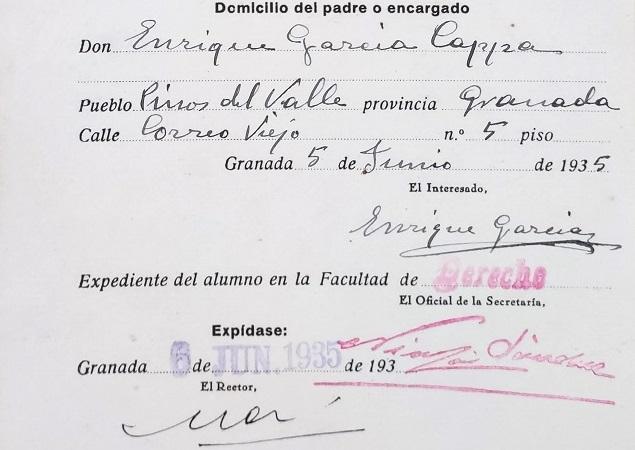 Domicilio del padre o encargado
Don Enrique García Cappa
Pueblo Pinos del Valle provincia Granada
Calle Correo Viejo n.º 5 piso
Granada 5 de Junio de 1935
El Interesado,
Enrique García
Expediente del alumno en la Facultad de Derecho
El Oficial de la Secretaría,
Expídase:
Granada 6 de JUN. 1935 de 193
El Rector,